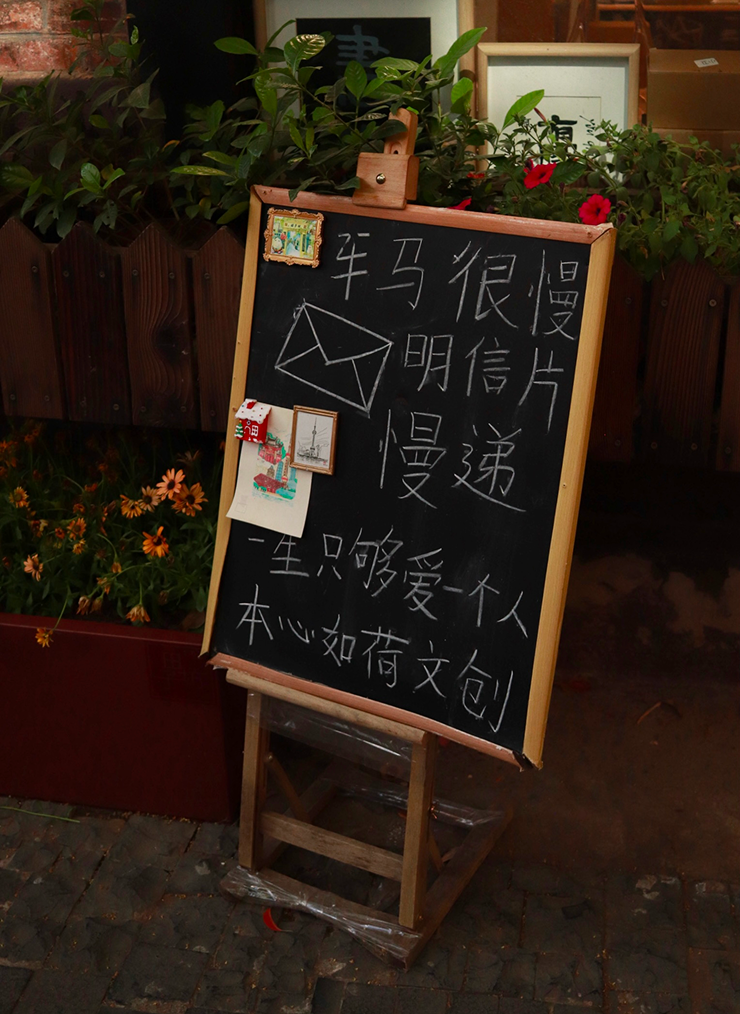 車马很慢
明信片
慢递
一生只够爱一个人
本心如荷文创